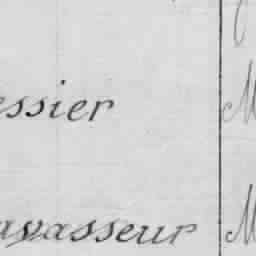 essier M
avasseur M